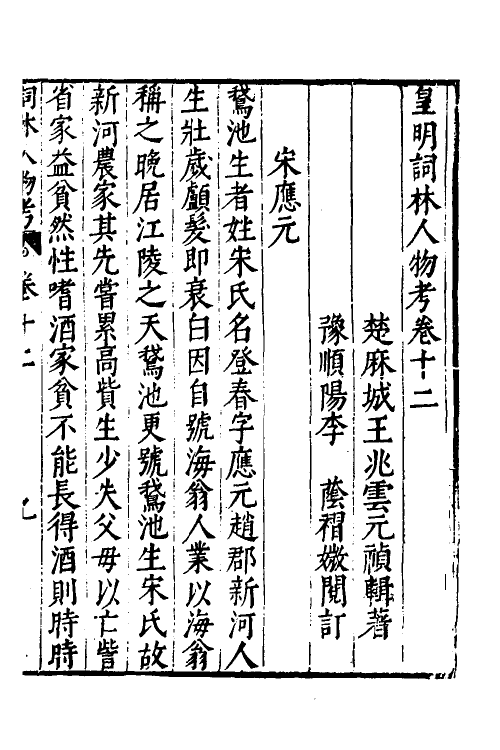 皇明詞林人物考卷十二
楚麻城王兆雲元禎輯著
豫順陽李 蔭褶嬓閱訂
宋應元
鵞池生者姓宋氏名登春字應元趙郡新河人
生壯歲顱髮即衰白因自號海翁人業以海翁
稱之晚居江陵之天鵞池更號鵞池生宋氏故
新河農家其先嘗累高貲生少失父母以亡訾
省家益貧然性嗜酒家貧不能長得酒則時時
詞林人物考 卷十二 九